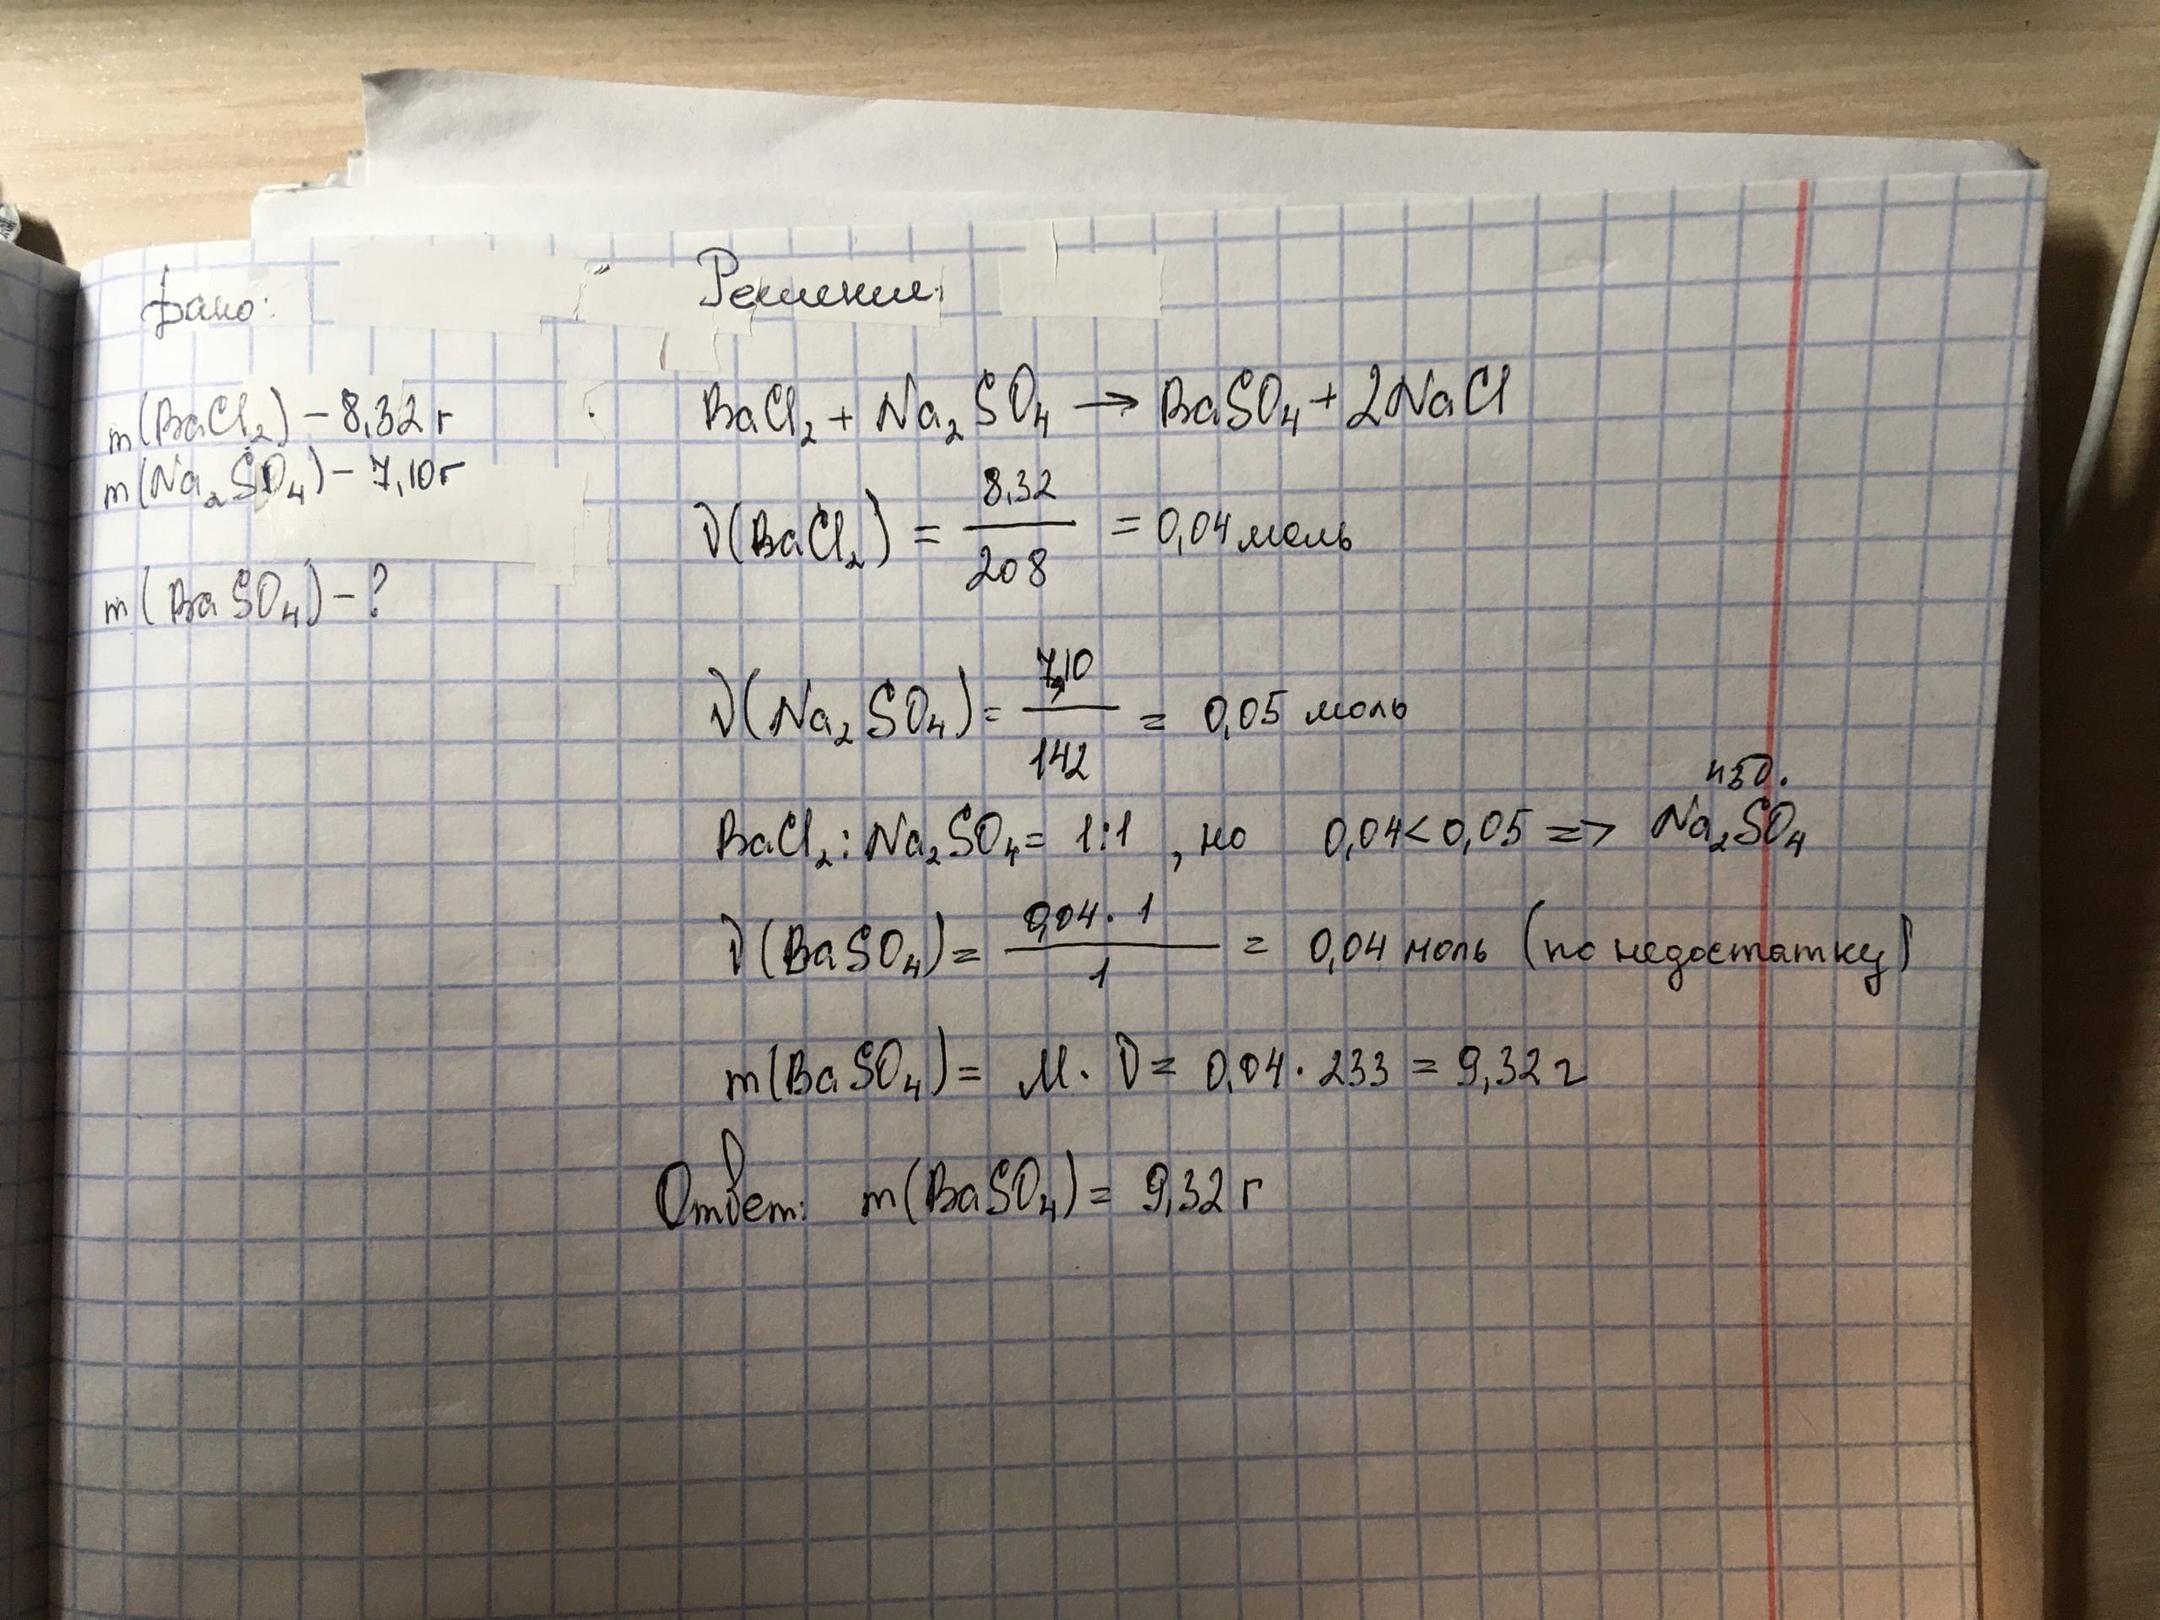 Дано:
m(BaCl₂) – 8,32 г
m(Na₂SO₄) – 7,10 г
m(BaSO₄) – ?
Решение:
BaCl₂ + Na₂SO₄ → BaSO₄ + 2NaCl
ν(BaCl₂) = 8,32 / 208 = 0,04 моль
ν(Na₂SO₄) = 7,10 / 142 = 0,05 моль
изб.
BaCl₂ : Na₂SO₄ = 1:1 , но 0,04 < 0,05 => Na₂SO₄
ν(BaSO₄) = 0,04 · 1 / 1 = 0,04 моль (по недостатку)
m(BaSO₄) = M · ν = 0,04 · 233 = 9,32 г
Ответ: m(BaSO₄) = 9,32 г